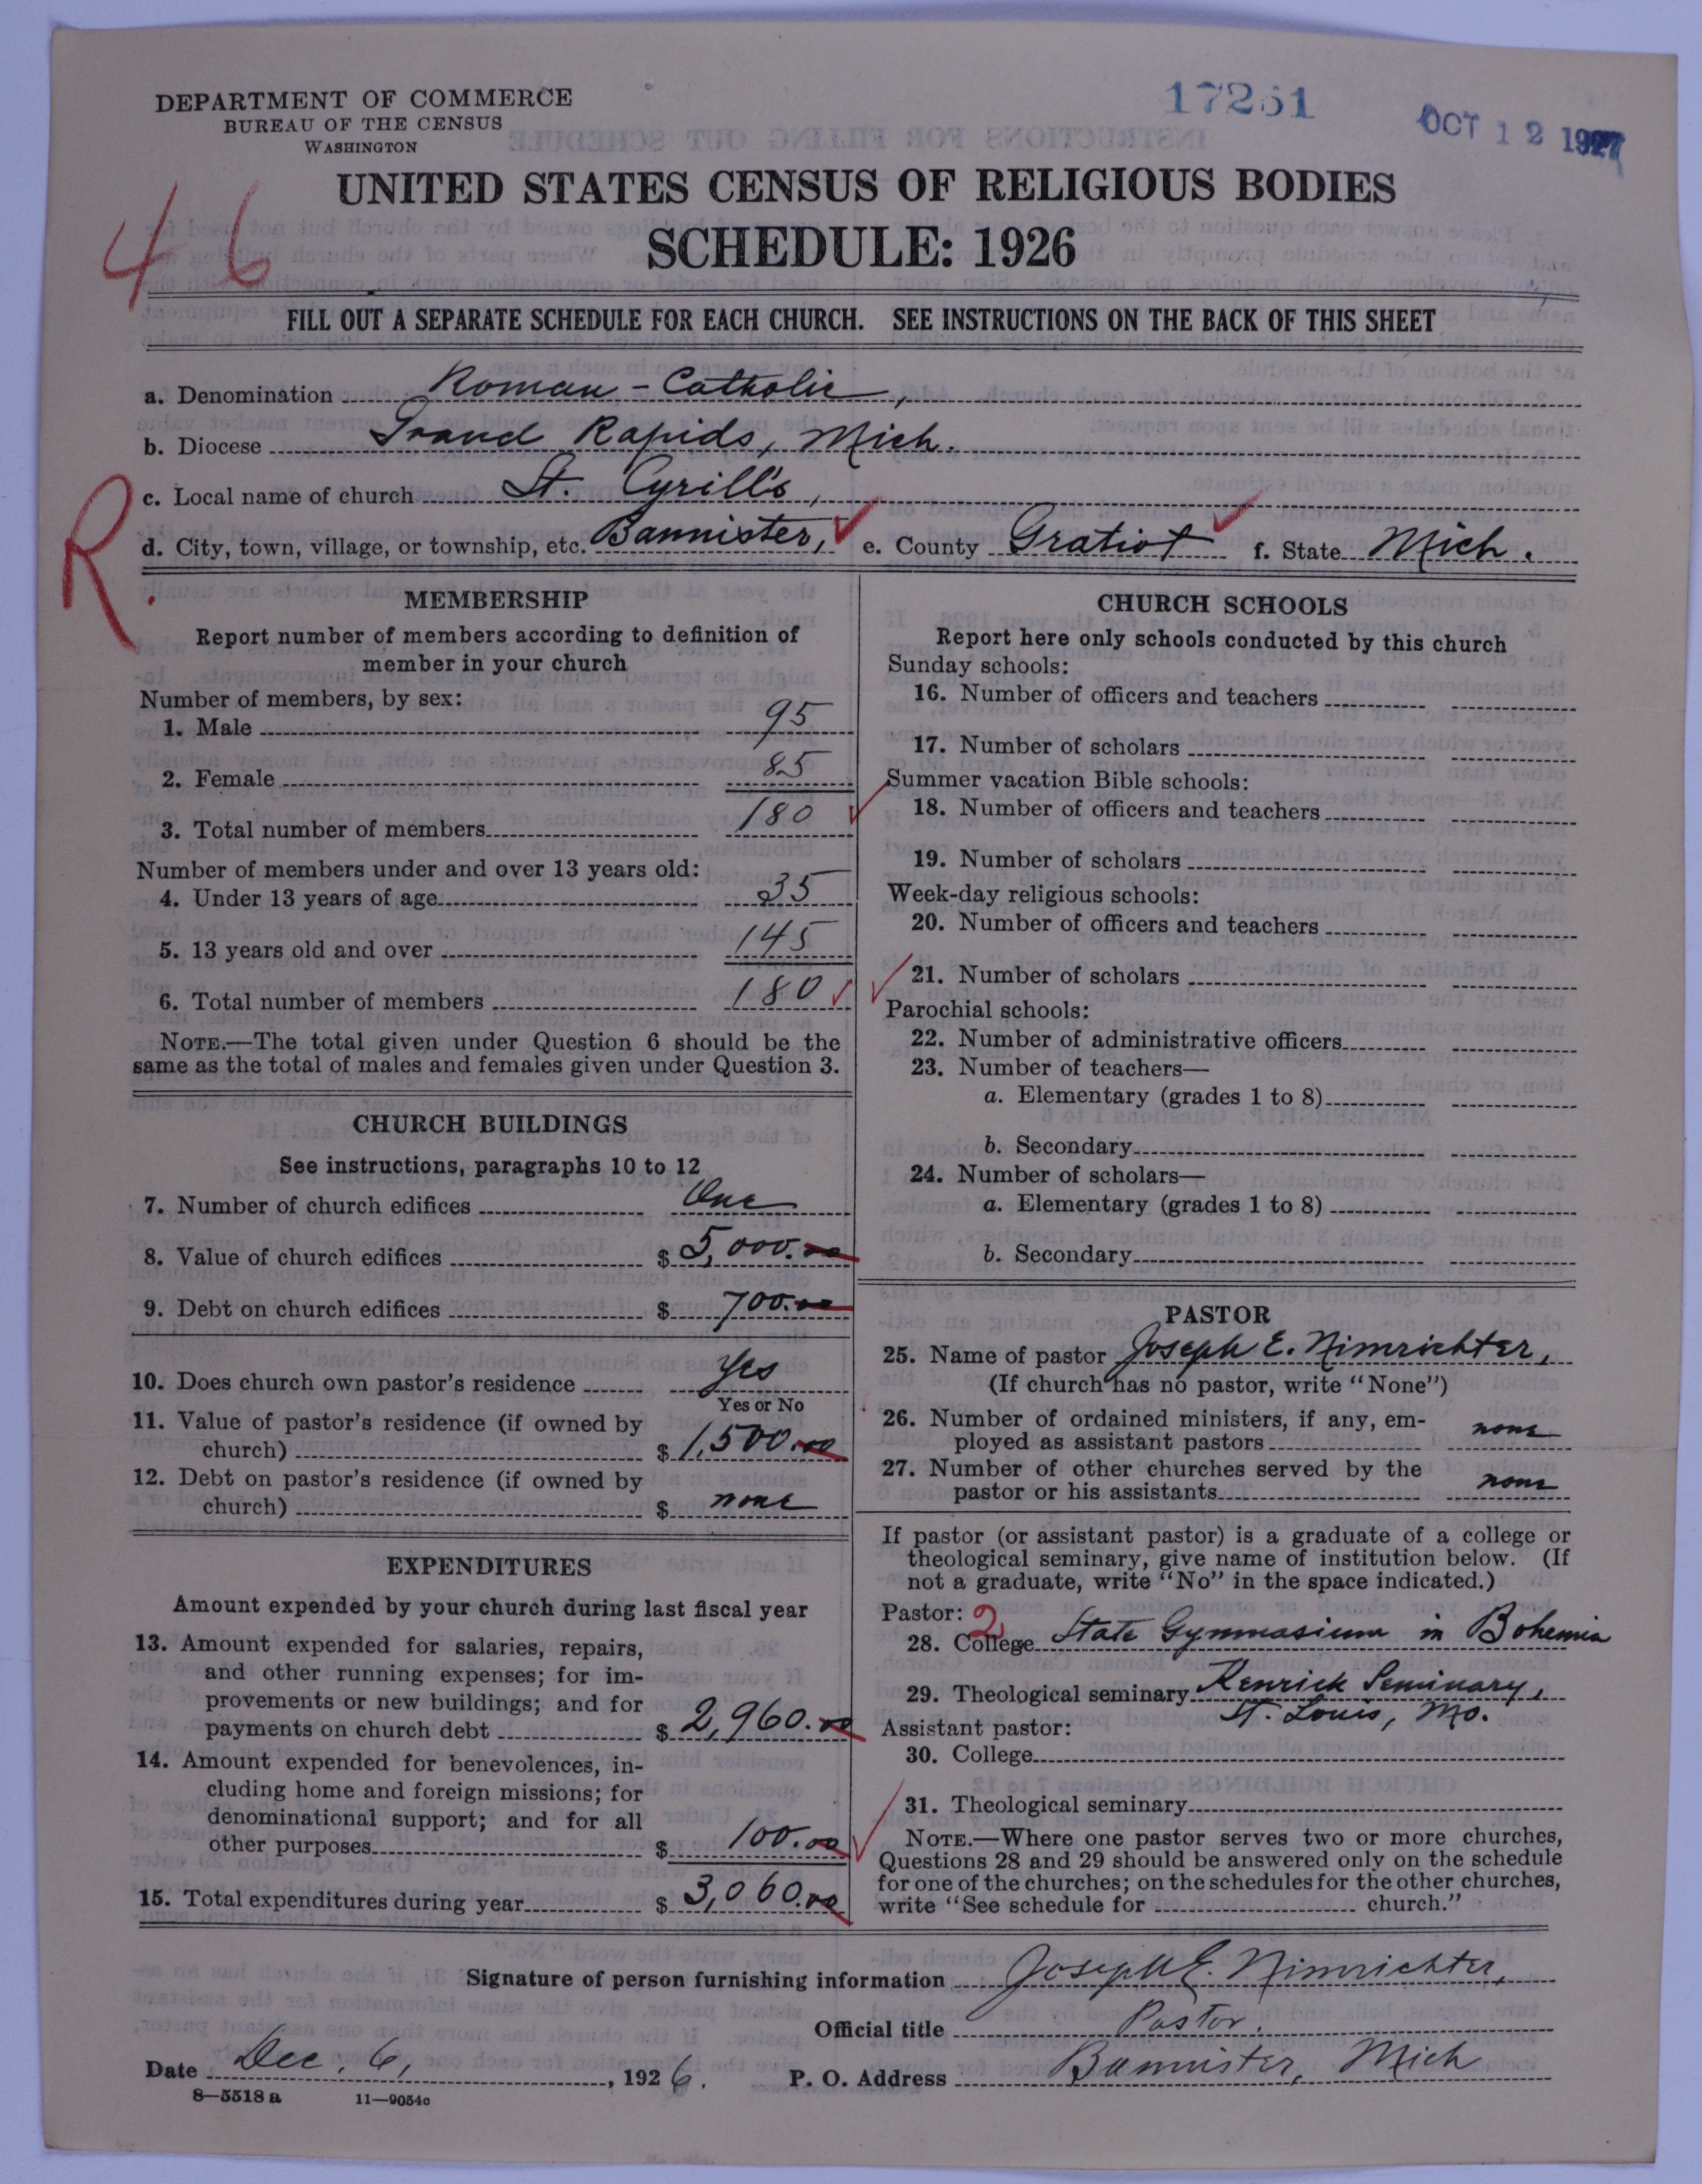 DEPARTMENT OF COMMERCE
BUREAU OF THE CENSUS
WASHINGTON
17261
OCT 12 1927
UNITED STATES CENSUS OF RELIGIOUS BODIES
SCHEDULE: 1926
46
FILL OUT A SEPARATE SCHEDULE FOR EACH CHURCH. SEE INSTRUCTIONS ON THE BACK OF THIS SHEET
a. Denomination Roman-Catholic,
b. Diocese Grand Rapids, Mich.
c. Local name of church St. Cyrill's,
R.
d. City, town, village, or township, etc. Bannister, e. County Gratiot f. State Mich.
MEMBERSHIP
Report number of members according to definition of
member in your church
Number of members, by sex:
1. Male 95
2. Female 85
3. Total number of members 180
Number of members under and over 13 years old:
4. Under 13 years of age 35
5. 13 years old and over 145
6. Total number of members 180
NOTE.—The total given under Question 6 should be the
same as the total of males and females given under Question 3.
CHURCH BUILDINGS
See instructions, paragraphs 10 to 12
7. Number of church edifices One
8. Value of church edifices $ 5,000.00
9. Debt on church edifices $ 700.00
10. Does church own pastor's residence Yes
Yes or No
11. Value of pastor's residence (if owned by
church) $ 1,500.00
12. Debt on pastor's residence (if owned by
church) $ none
EXPENDITURES
Amount expended by your church during last fiscal year
13. Amount expended for salaries, repairs,
and other running expenses; for im-
provements or new buildings; and for
payments on church debt $ 2,960.00
14. Amount expended for benevolences, in-
cluding home and foreign missions; for
denominational support; and for all
other purposes $ 100.00
15. Total expenditures during year $ 3,060.00
CHURCH SCHOOLS
Report here only schools conducted by this church
Sunday schools:
16. Number of officers and teachers
17. Number of scholars
Summer vacation Bible schools:
18. Number of officers and teachers
19. Number of scholars
Week-day religious schools:
20. Number of officers and teachers
21. Number of scholars
Parochial schools:
22. Number of administrative officers
23. Number of teachers—
a. Elementary (grades 1 to 8)
b. Secondary
24. Number of scholars—
a. Elementary (grades 1 to 8)
b. Secondary
PASTOR
25. Name of pastor Joseph E. Nimrichter,
(If church has no pastor, write "None")
26. Number of ordained ministers, if any, em-
ployed as assistant pastors none
27. Number of other churches served by the
pastor or his assistants none
If pastor (or assistant pastor) is a graduate of a college or
theological seminary, give name of institution below. (If
not a graduate, write "No" in the space indicated.)
Pastor: 2
28. College State Gymnasium in Bohemia
29. Theological seminary Kenrick Seminary,
St. Louis, Mo.
Assistant pastor:
30. College
31. Theological seminary
NOTE.—Where one pastor serves two or more churches,
Questions 28 and 29 should be answered only on the schedule
for one of the churches; on the schedules for the other churches,
write "See schedule for church."
Signature of person furnishing information Joseph E. Nimrichter,
Official title Pastor.
Date Dec. 6, 1926. P. O. Address Bannister, Mich
8—5518 a 11—9054c